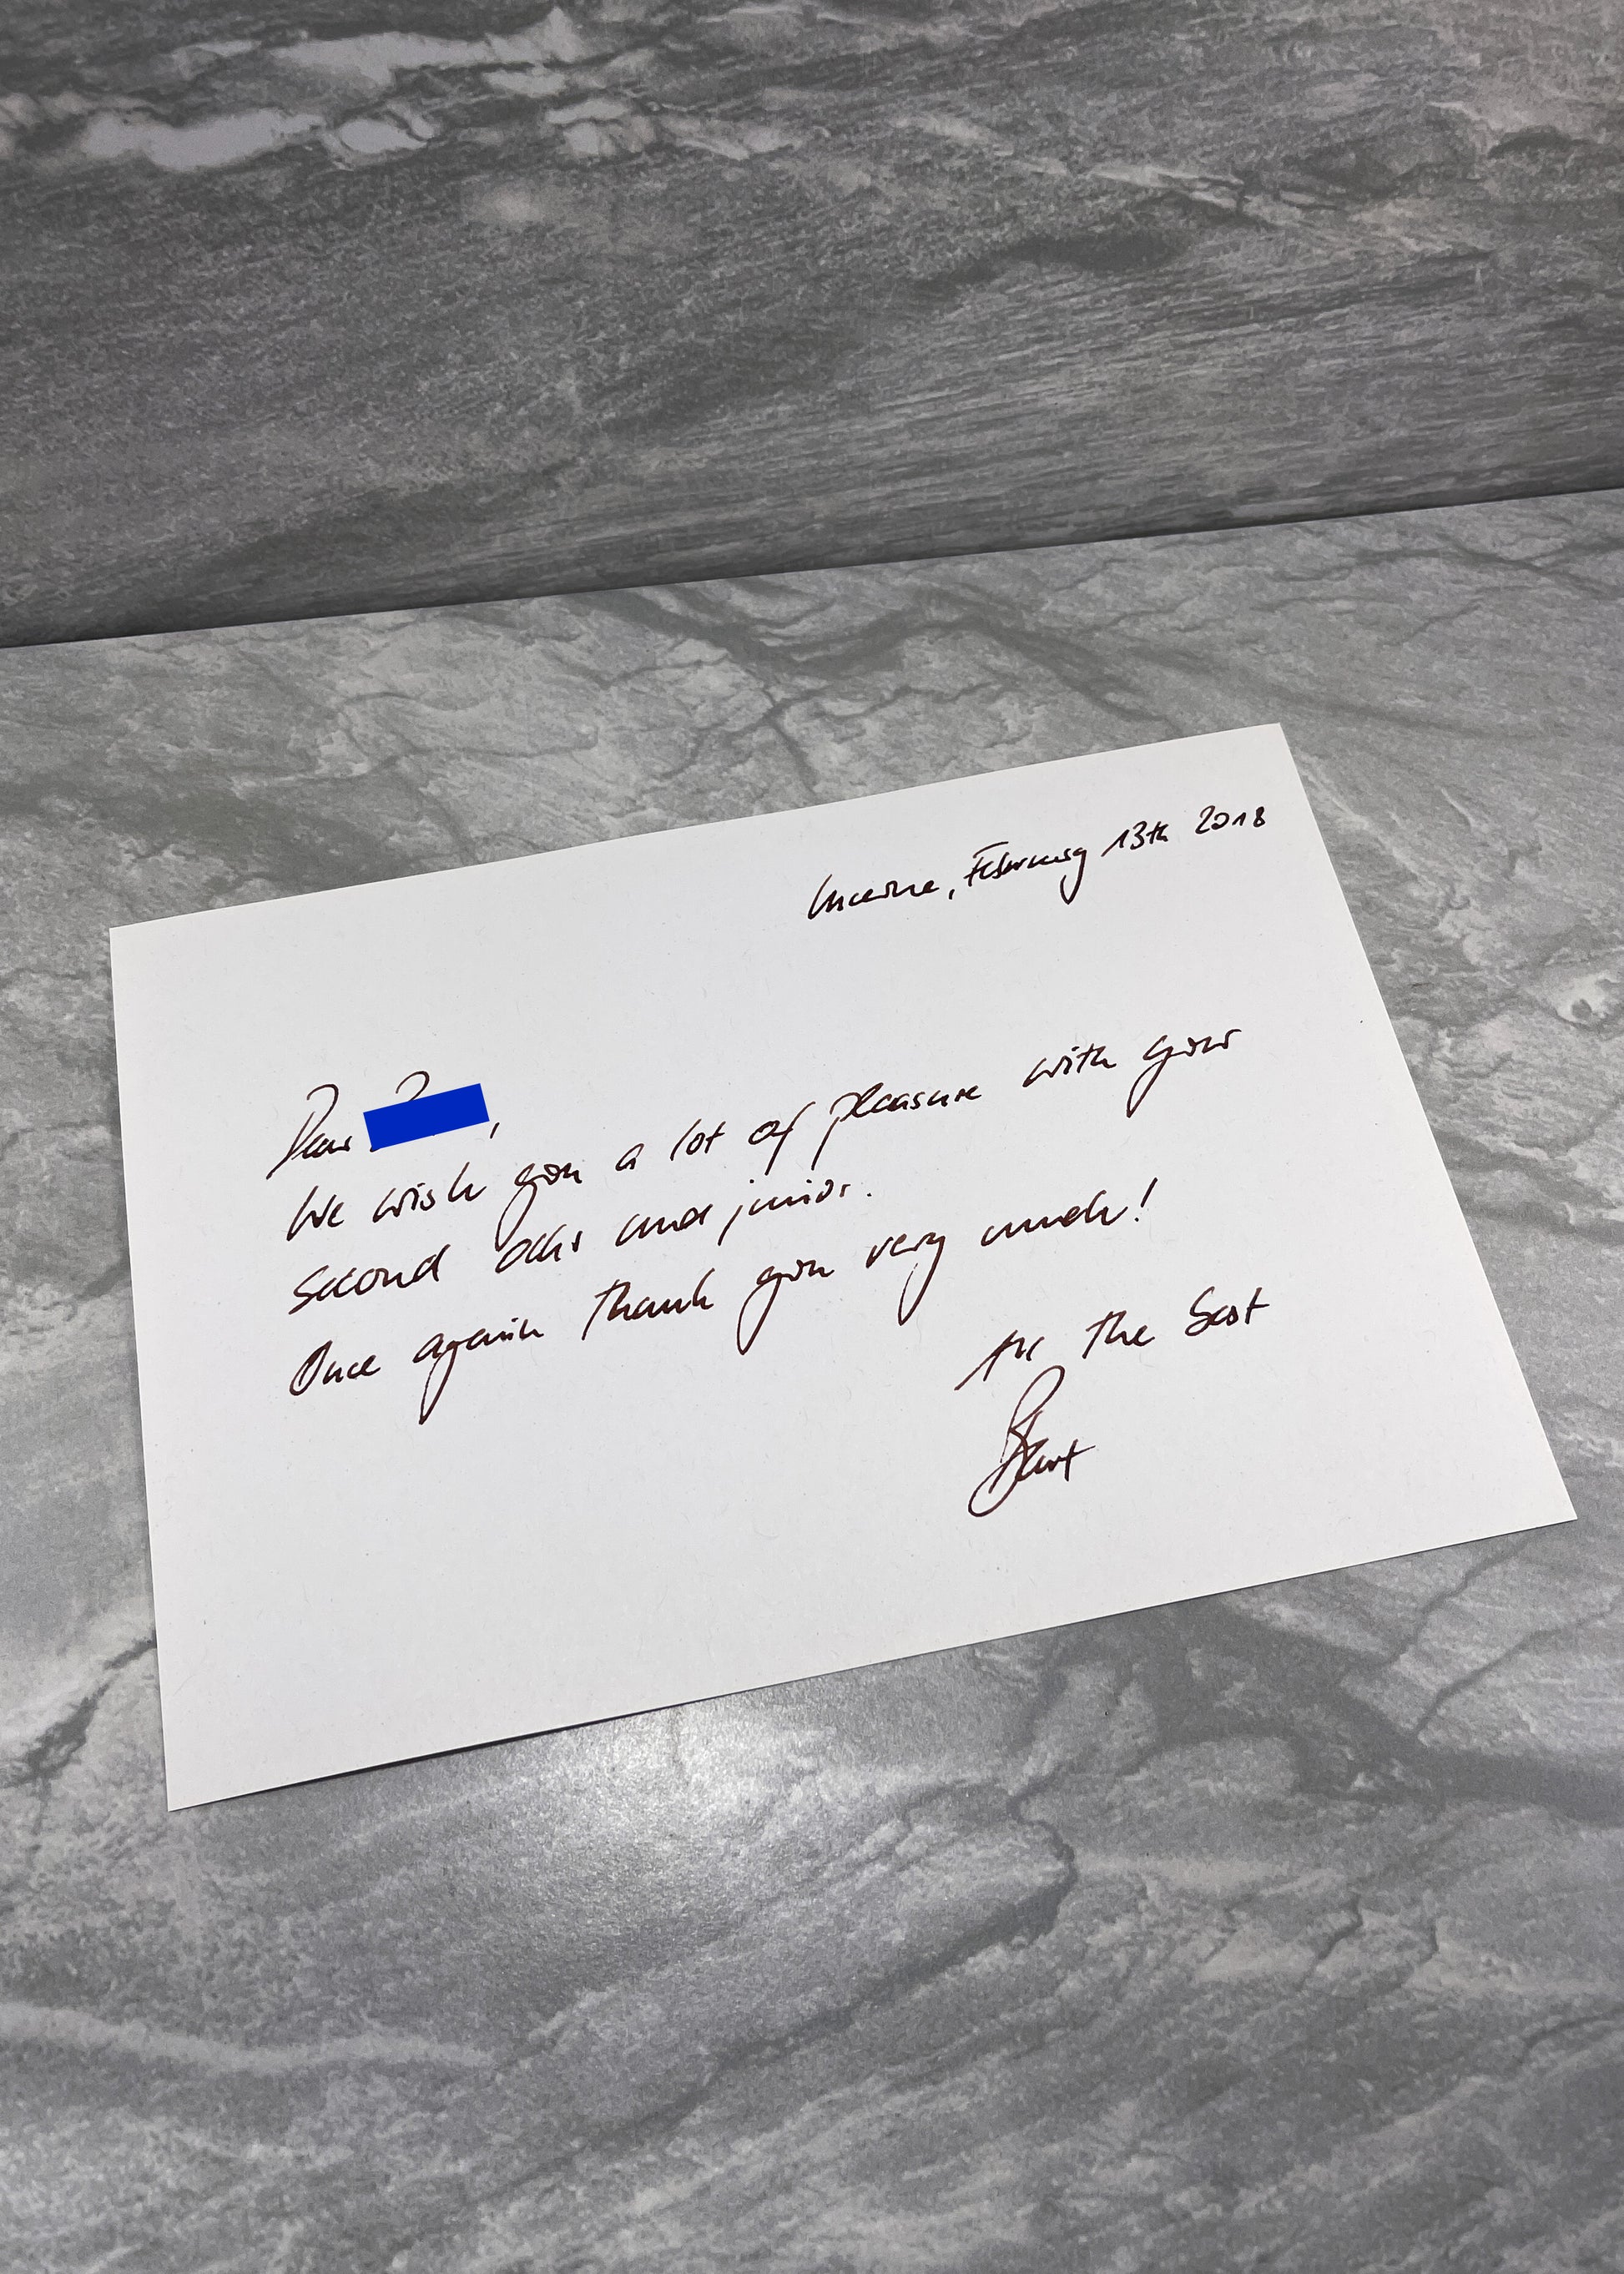 Lucerne, February 13th 2018
Dear ,
We wish you a lot of pleasure with your
second ochs und junior.
Once again thank you very much!
All the best